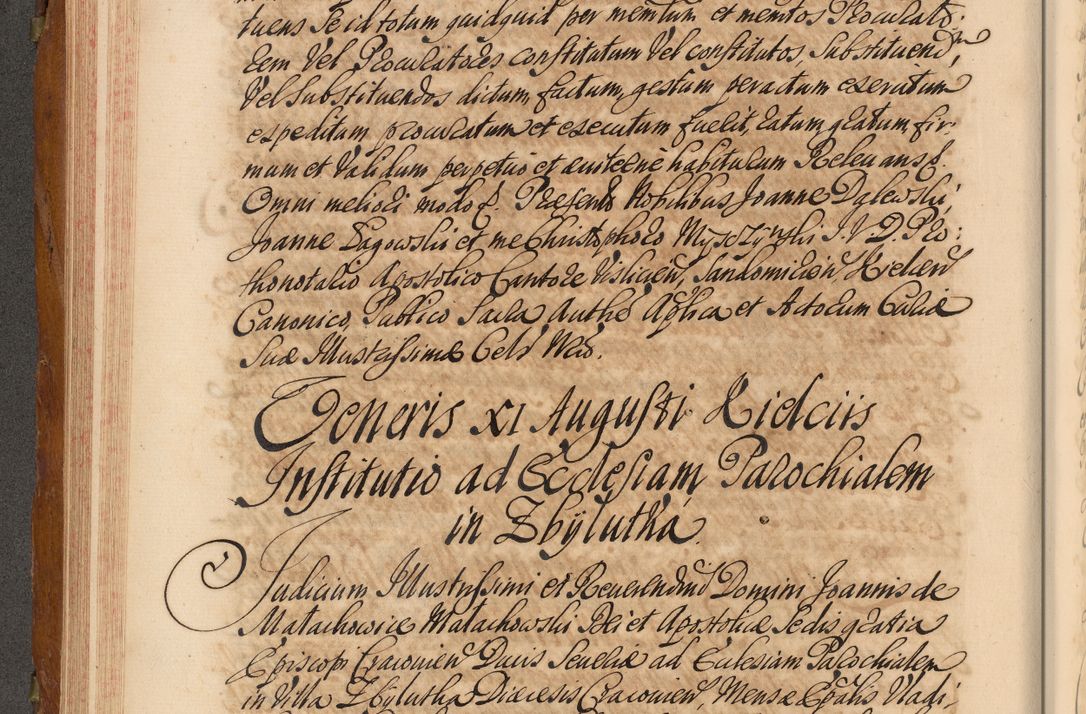 tuens Se id totum quidquid per memtum et memtos Procurato:
rem Vel Procuratores constitutum Vel constitutos, Substituend,
Vel Substituendos dictum, factum, gestum peractum exercitum
expeditum procuratum et executum fuerit, ratum, gratum, fir,
mum et Validum perpetuo et habiturum Releuans f.
Omni meliori modo f. Praesente Nobilibus Joanne Dąlewski,
Joanne Łagowski et me Christophoro Myszzyński J. V. D. Pro:
thonotario Apostolico Cantore Vislicien, Sandomirien, Kielcen
Canonico, Publico Sacra Authe Aplica et Actorum Curiae
Suae Illustrissimae Cels Not.
Veneris XI Augusti Kielciis
Institutio ad Ecclesiam Parochialem
in Zbylutka
Judicium Illustrissimi et Reuerendmi Domini Joannis de
Małachowice Małachowski Dei et Apostolicae Sedis gratia
Episcopi Cracouien Ducis Seueriae ad Ecclesiam Parochialem
in Villa Zbylutka Dioecesis Cracouien, Mensae Epalis Vladi: